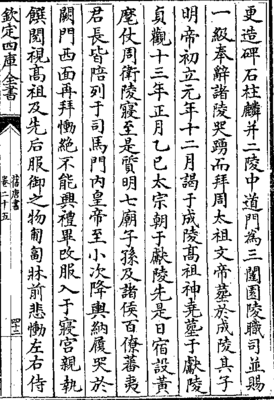 更造碑石柱麟并二陵中道門為三闥園陵職司並賜
一級奉辭諸陵哭踊而拜周太祖文帝墓於成陵其子
明帝初立元年十二月謁于成陵高祖神堯墓于獻陵
貞觀十三年正月乙巳太宗朝于獻陵先是日宿設黃
麾仗周衛陵寢至是質明七廟子孫及諸侯百僚蕃夷
君長皆陪列于司馬門內皇帝至小次降輿納履哭於
闕門西面再拜慟絕不能興禮畢改服入于寢宮親執
饌閱視高祖及先后服御之物匍匐牀前悲慟左右侍
欽定四庫全書
舊唐書
卷二十五